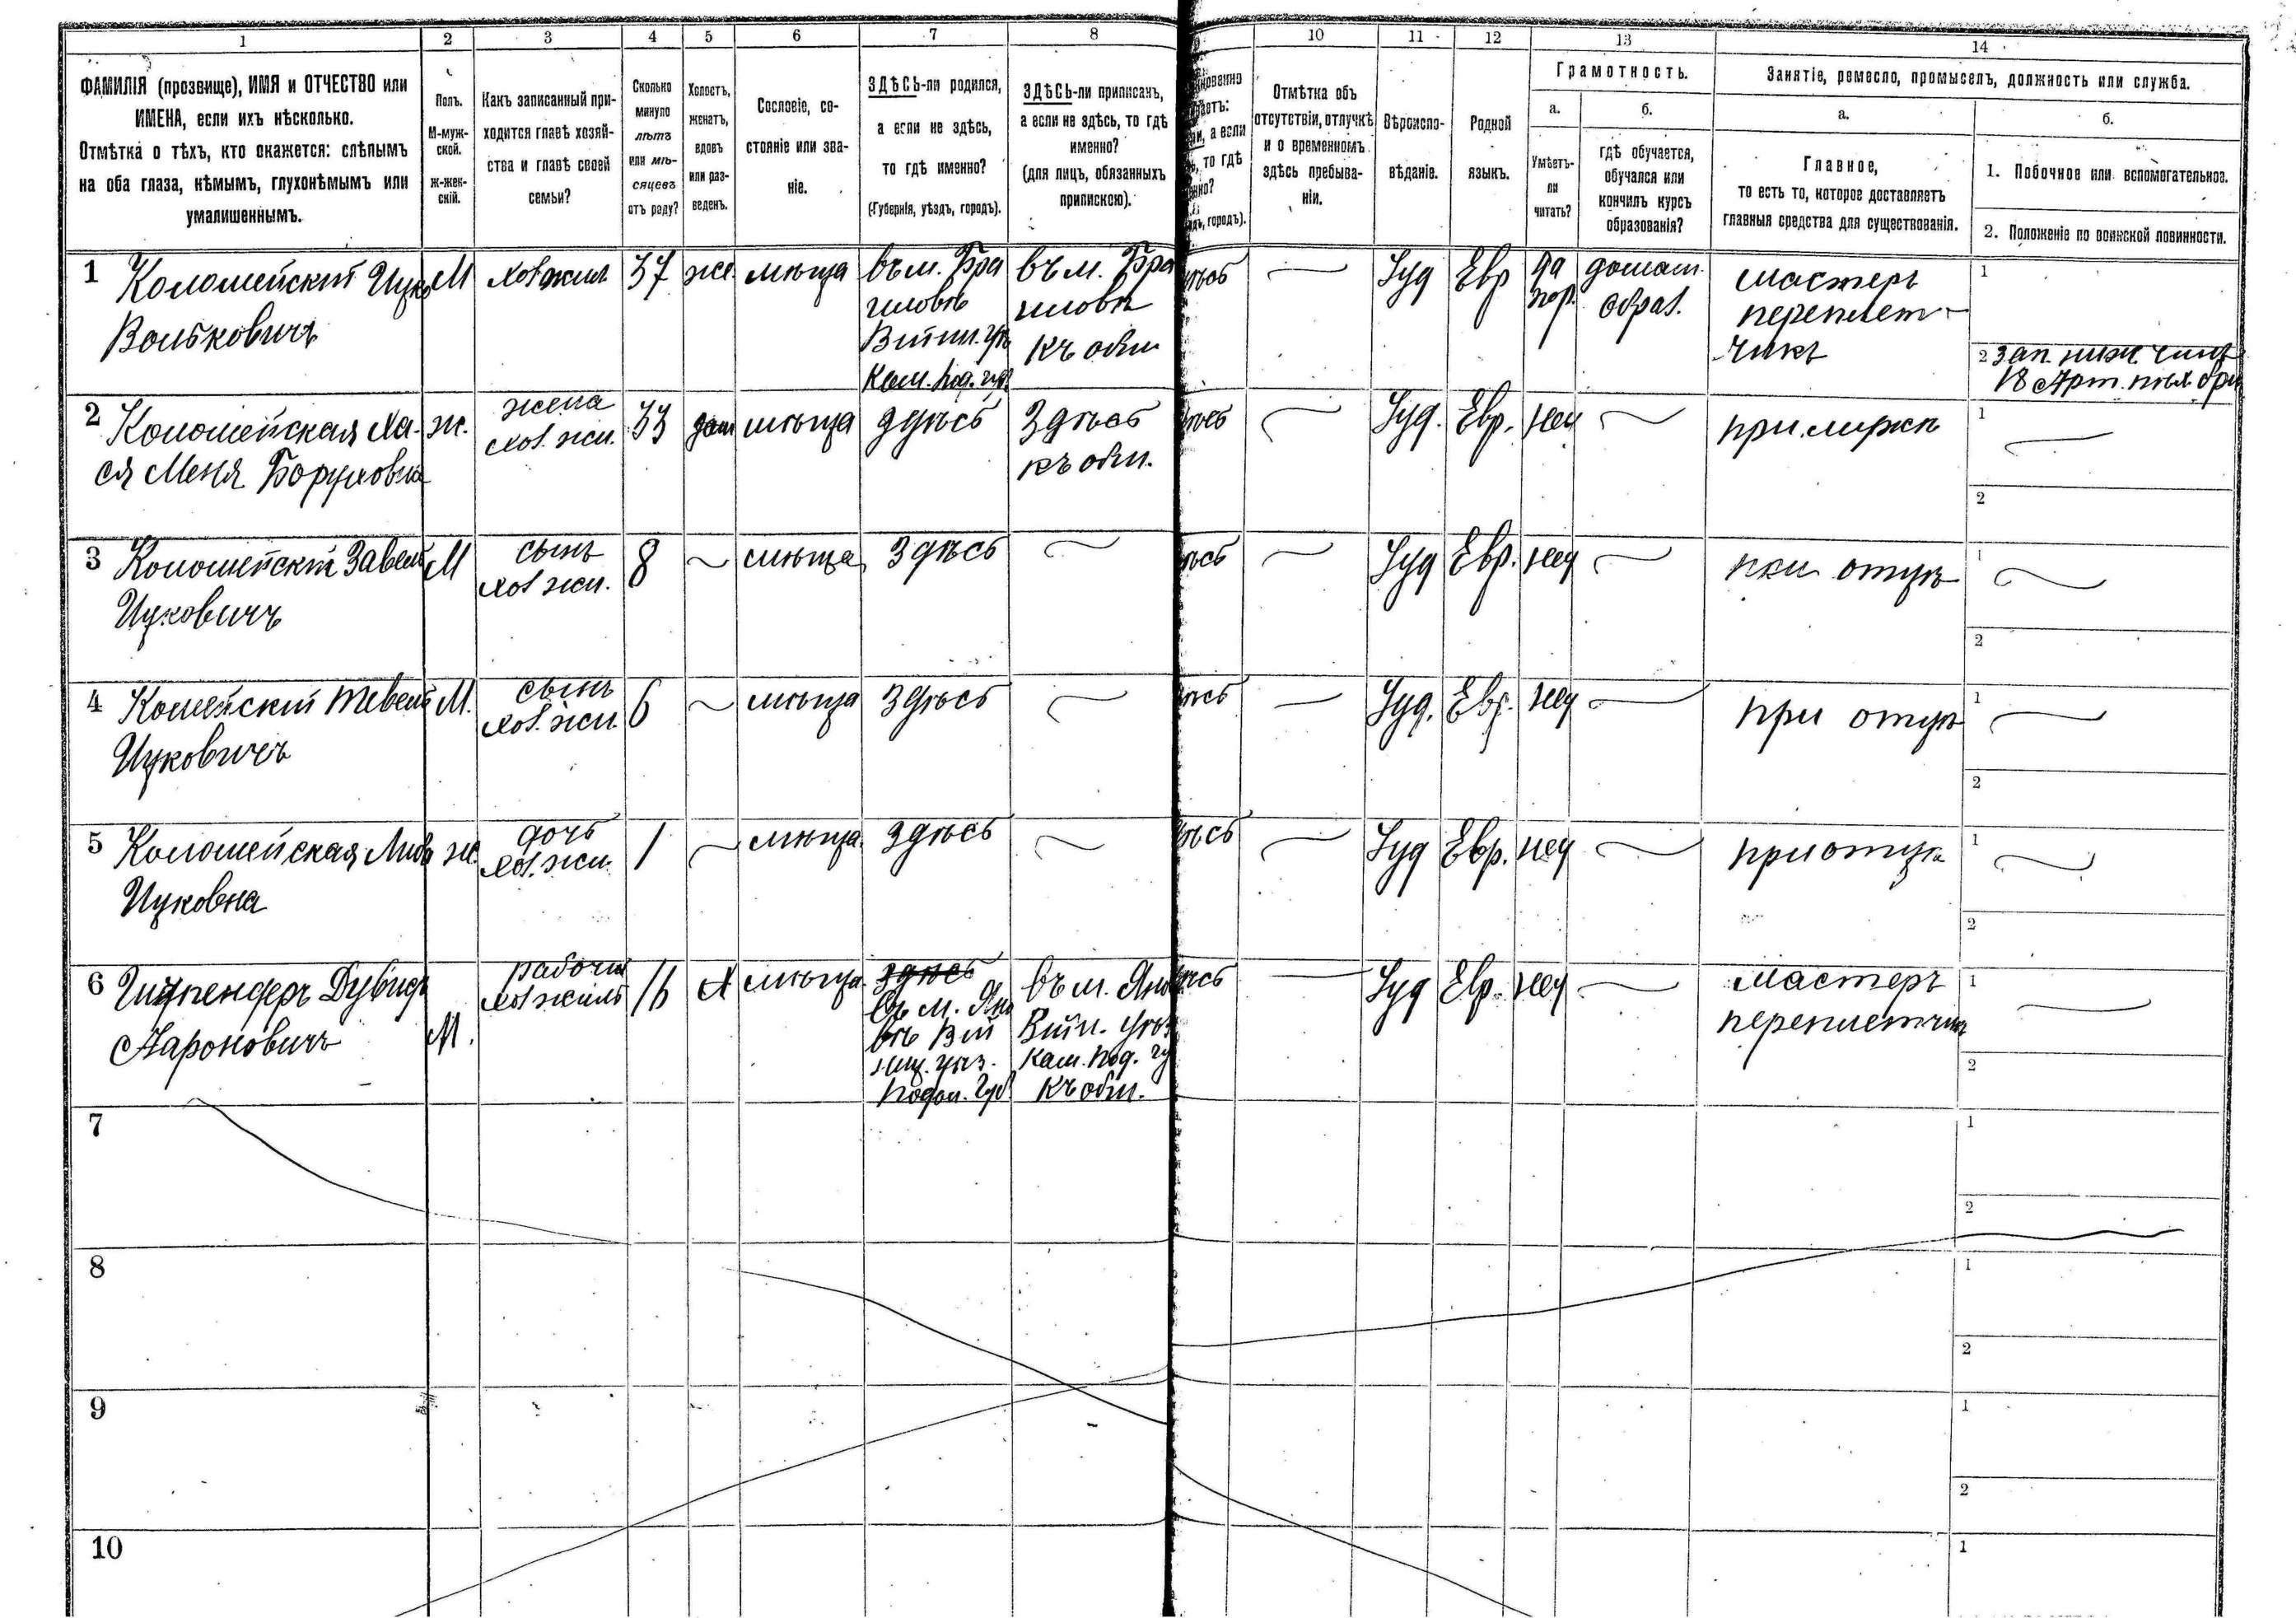 1 2 3 4 5 6 7 8 10 11 12 13 14
ФАМИЛІЯ (прозвище), ИМЯ и ОТЧЕСТВО или
ИМЕНА, если ихъ нѣсколько.
Отмѣтка о тѣхъ, кто окажется: слѣпымъ
на оба глаза, нѣмымъ, глухонѣмымъ или
умалишеннымъ.
Полъ.
М-муж-
ской.
ж-жен-
скій.
Какъ записанный при-
ходится главѣ хозяй-
ства и главѣ своей
семьи?
Сколько
минуло
лѣтъ
или мѣ-
сяцевъ
отъ роду?
Холостъ,
женатъ,
вдовъ
или раз-
веденъ.
Сословіе, со-
стояніе или зва-
ніе.
ЗДѢСЬ-ли родился,
а если не здѣсь,
то гдѣ именно?
(Губернія, уѣздъ, городъ).
ЗДѢСЬ-ли приписанъ,
а если не здѣсь, то гдѣ
именно?
(для лицъ, обязанныхъ
припискою).
а если
то гдѣ
городъ).
Отмѣтка объ
отсутствіи, отлучкѣ
и о временномъ
здѣсь пребыва-
ніи.
Вѣроиспо-
вѣданіе.
Родной
языкъ.
Грамотность.
а.
Умѣетъ-
ли
читать?
б.
гдѣ обучается,
обучался или
кончилъ курсъ
образованія?
Занятіе, ремесло, промыселъ, должность или служба.
а.
Главное,
то есть то, которое доставляетъ
главныя средства для существованія.
б.
1. Побочное или вспомогательное.
2. Положеніе по воинской повинности.
1 Коломейскій Ицко
Вольковичъ
М
хоз жил
37
же.
мѣща
въ м. Бра
иловѣ
Винн. уѣ
Кам. под. губ.
въ м. Бра
иловѣ
къ общ
Іуд
Евр
да
домаш.
образ.
мастеръ
переплет-
чикъ
1
2 зап. ниж. чинъ
18 Арт.
2 Коломейская Ха-
ся Меня Боруховна
ж.
жена
хоз. жи.
33
мѣща
здѣсь
Здѣсь
къ общ.
Іуд.
Евр.
нѣ
при мужѣ
1
2
3 Коломейскій Завель
Ицковичъ
М
сынъ
хоз жи.
8
мѣща
Здѣсь
Іуд
Евр.
нѣ
при отцѣ
1
2
4 Комейскій Тевель
Ицковичъ
М.
сынъ
хоз. жи.
6
мѣща
Здѣсь
Іуд.
Евр.
нѣ
при отцѣ
1
2
5 Коломейская Либа
Ицковна
ж.
дочь
хоз. жи.
1
мѣща.
здѣсь
Іуд
Евр.
нѣ
при отцѣ
1
2
6 Дувидъ
Аароновичъ
М.
рабочій
хоз жиль
16
Х
мѣща.
здѣсь
въ м. Яно
въ Вин
ниц. уѣз.
Подол. Губ.
въ м. Янов
Винн. уѣз
Кам. Под. гу
къ общ.
Іуд
Евр.
нѣ
мастеръ
переплетчикъ
1
2
7
1
2
8
1
2
9
1
2
10
1